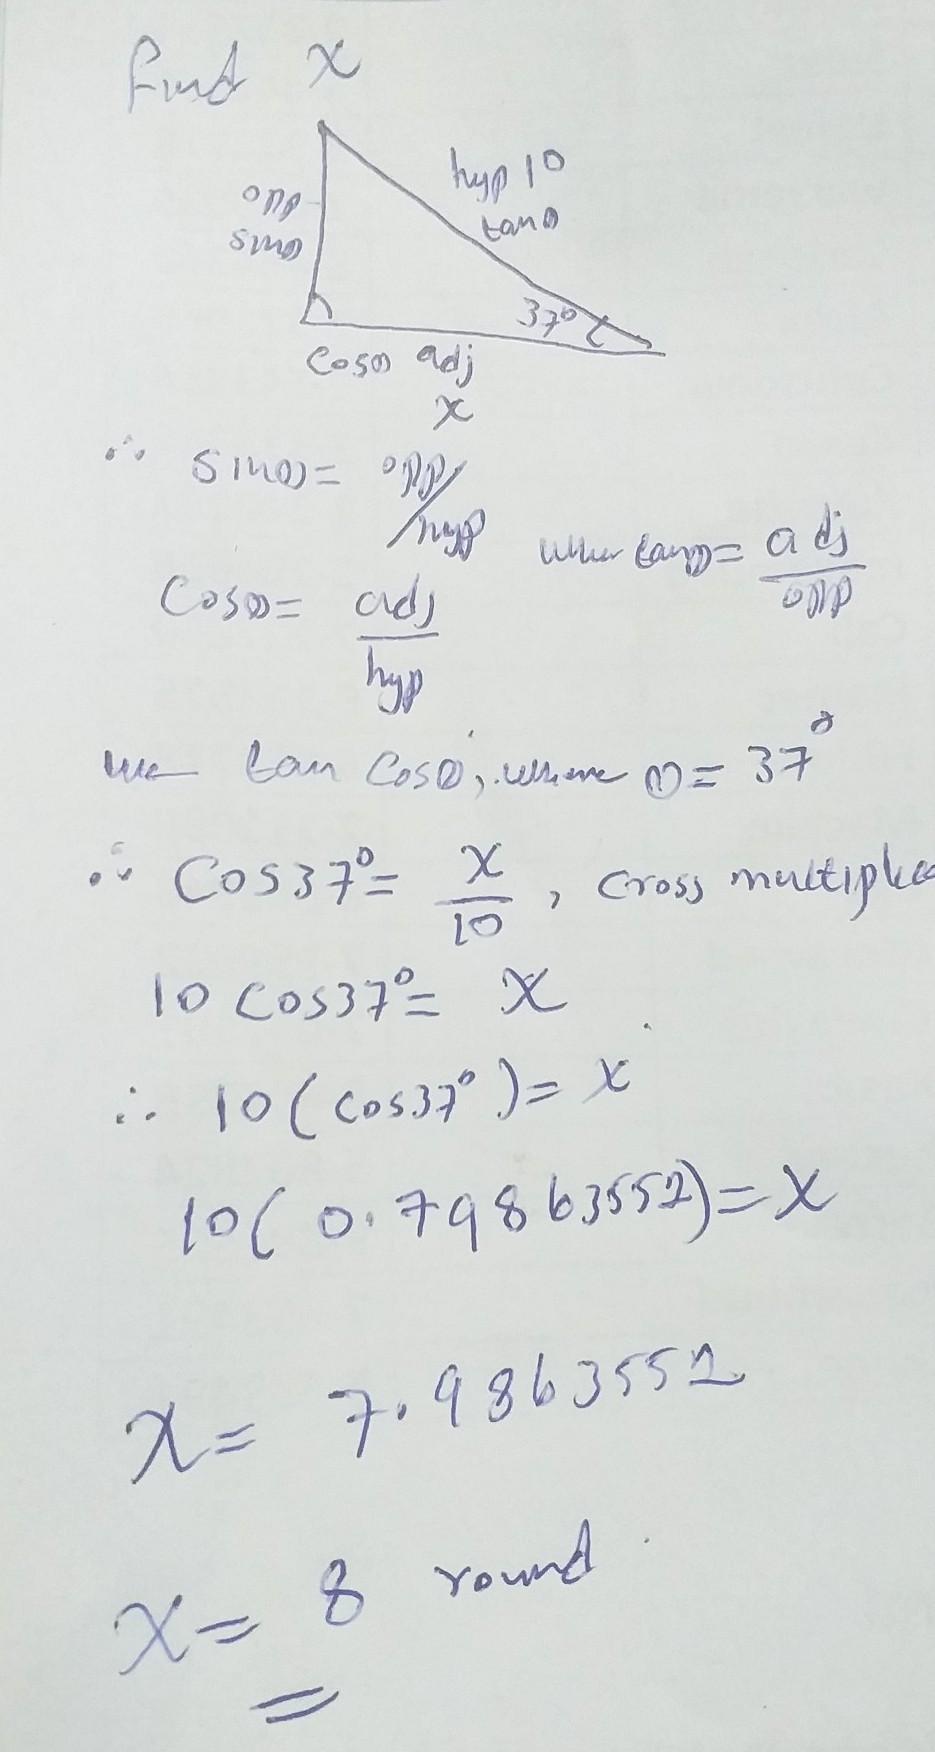 Find x
opp
sinθ
hyp 10
tanθ
37°
cosθ adj
x
∴ sinθ= opp/hyp
when tanθ= adj/opp
Cosθ= adj/hyp
we tan Cosθ, where θ= 37°
∴ Cos37°= x/10, cross multiplee
10 cos37°= x
∴ 10(cos37°)= x
10(0.79863551)=x
x= 7.9863551
x= 8 round